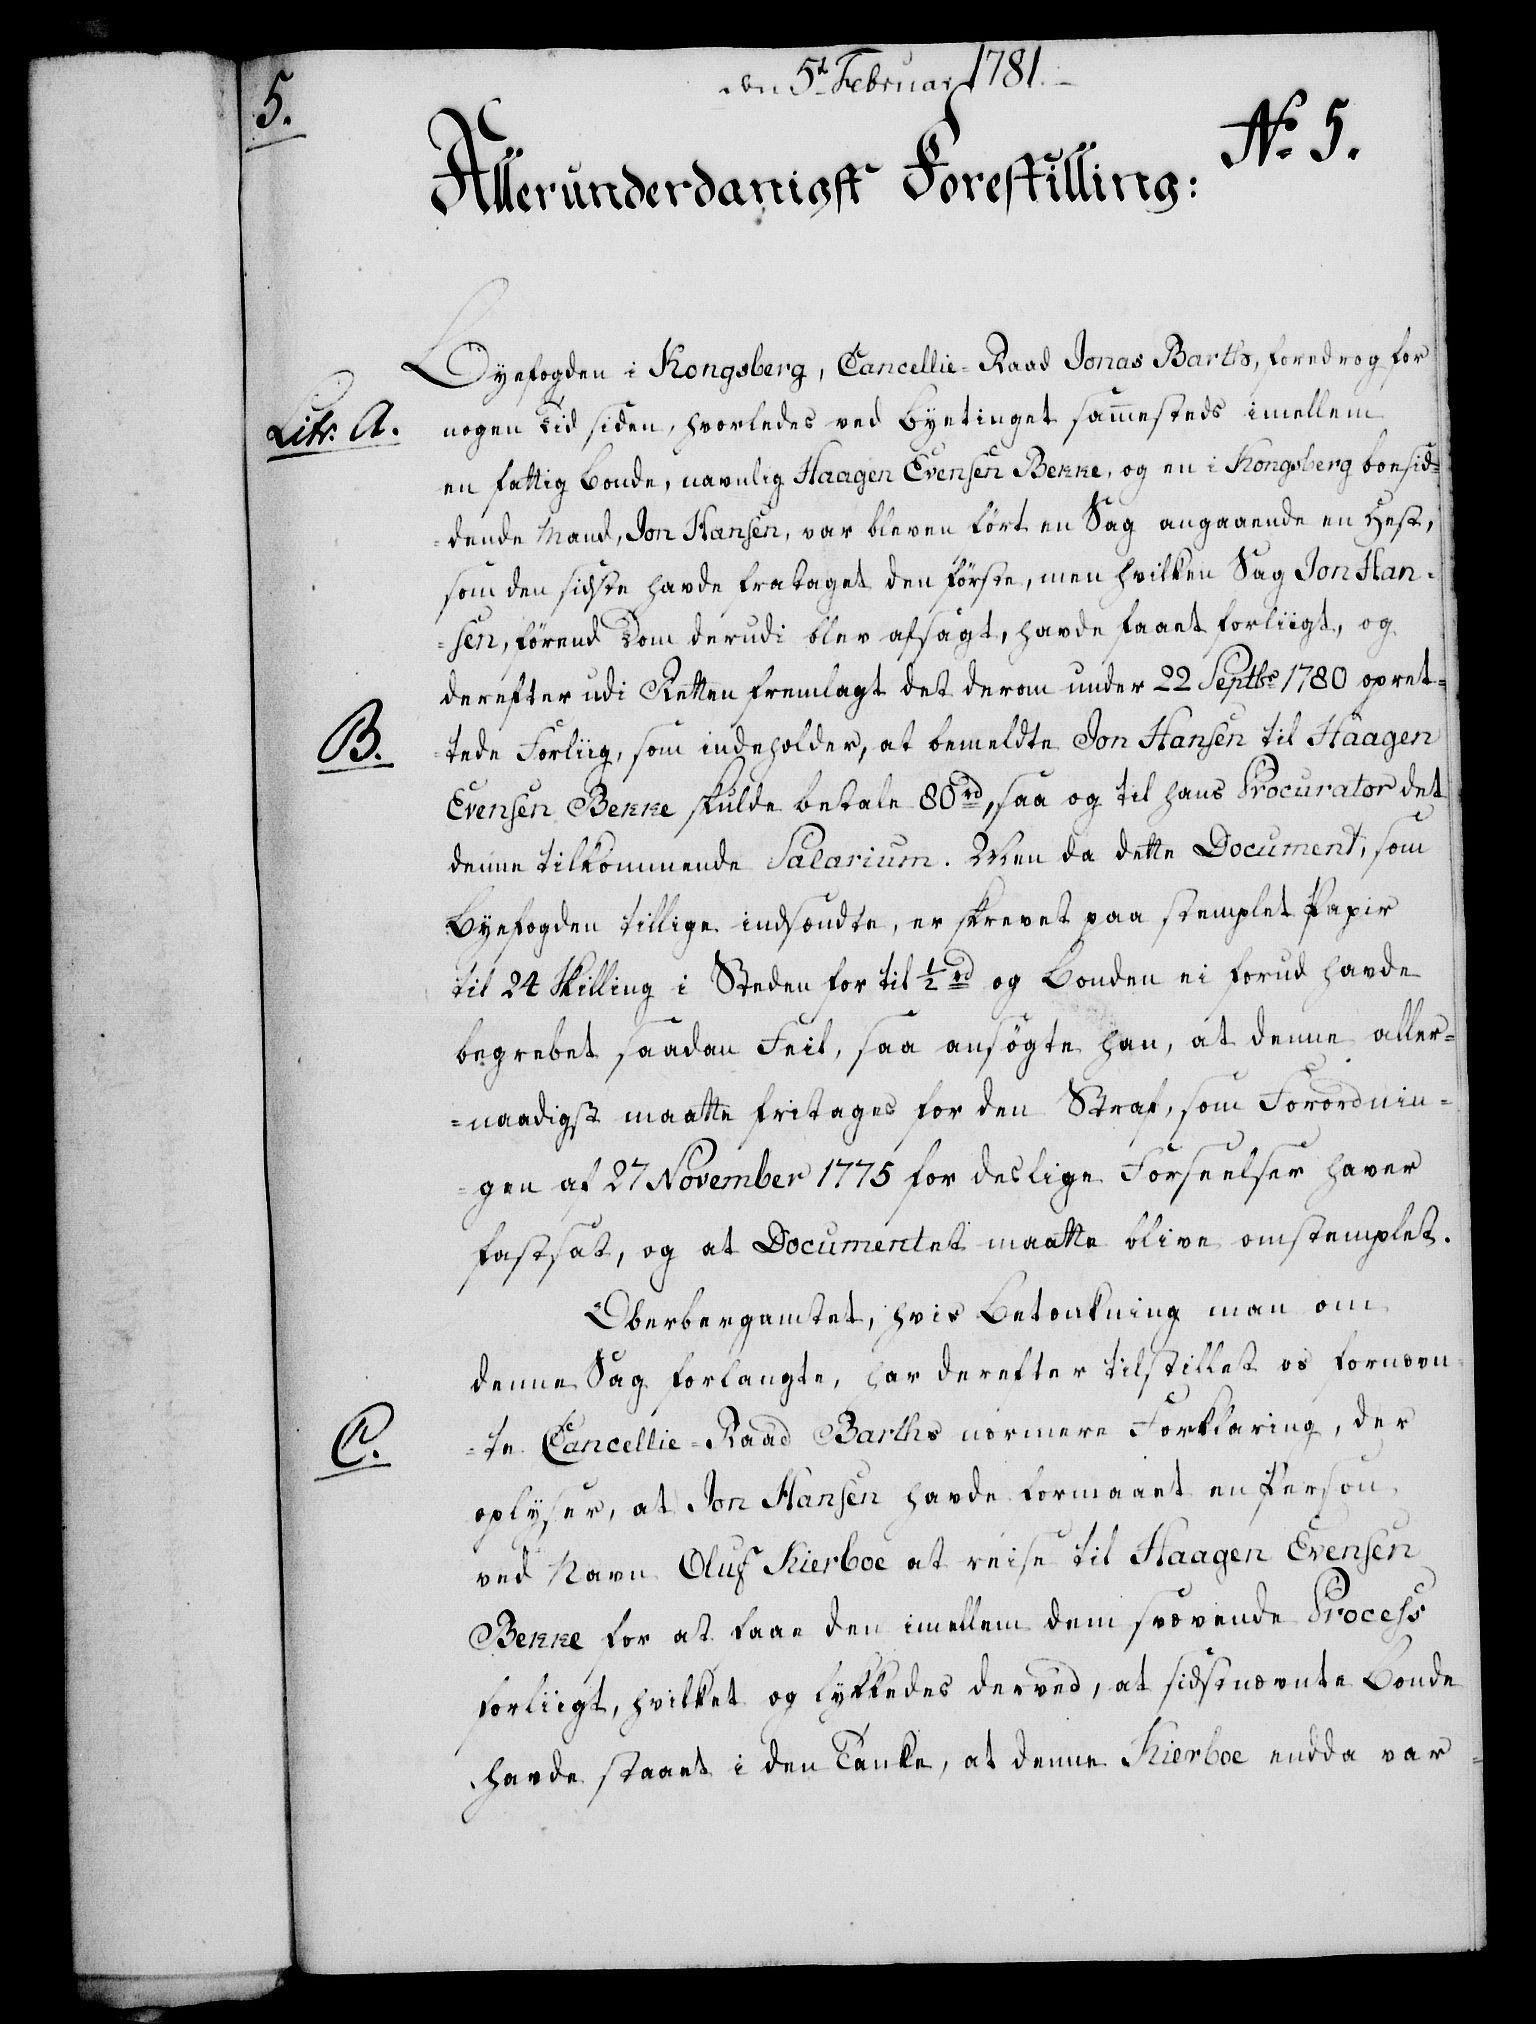 den 5t Februar 1781.
5.
No 5.
Allerunderdanigst Forestilling:
Byefogden i Kongsberg, Cancellie-Raad Jonas Barth, foredrog for
Litr. A.
nogen Tid siden, hvorledes ved Byetinget sam̄esteds imellem
en fattig Bonde, navnlig Haagen Evensen Bekke, og en i Kongsberg boesid-
-dende Mand, Jon Hansen, var bleven ført en Sag angaaende en Hest,
som den sidste havde frataget den første, men hvilken Sag Jon Han-
-sen, førend Dom derudi blev afsagt, havde faaet forliigt, og
derefter udi Retten fremlagt det derom under 22 Septbr 1780 opret-
B.
-tede Forliig, som indeholder, at bemeldte Jon Hansen til Haagen
Evensen Bekke skulde betale 80 rd, saa og til hans Procurator det
denne tilkommende Salarium. Men da dette Document, som
Byefogden tillige indsendte, er skrevet paa stemplet Papir
til 24 Skilling i Steden for til ½ rd og Bonden ei forud havde
begrebet saadan Feil, saa ansøgte han, at denne aller-
-naadigst maatte fritages for den Straf, som Forordnin-
-gen af 27 November 1775 for deslige Forseelser haver
fastsat, og at Documentet maatte blive omstemplet.
Oberbergamtet, hvis Betænkning man om
denne Sag forlangte, har derefter tilstillet os fornævn-
C.
-te Cancellie-Raad Barths nærmere Forklaring, der
oplyser, at Jon Hansen havde formaaet en Person
ved Navn Oluf Kierboe at reise til Haagen Evensen
Bekke for at faae den imellem dem svævende Process
forliigt, hvilket og lykkedes derved, at sidstnævnte Bonde
havde staaet i den Tanke, at denne Kierboe endda var